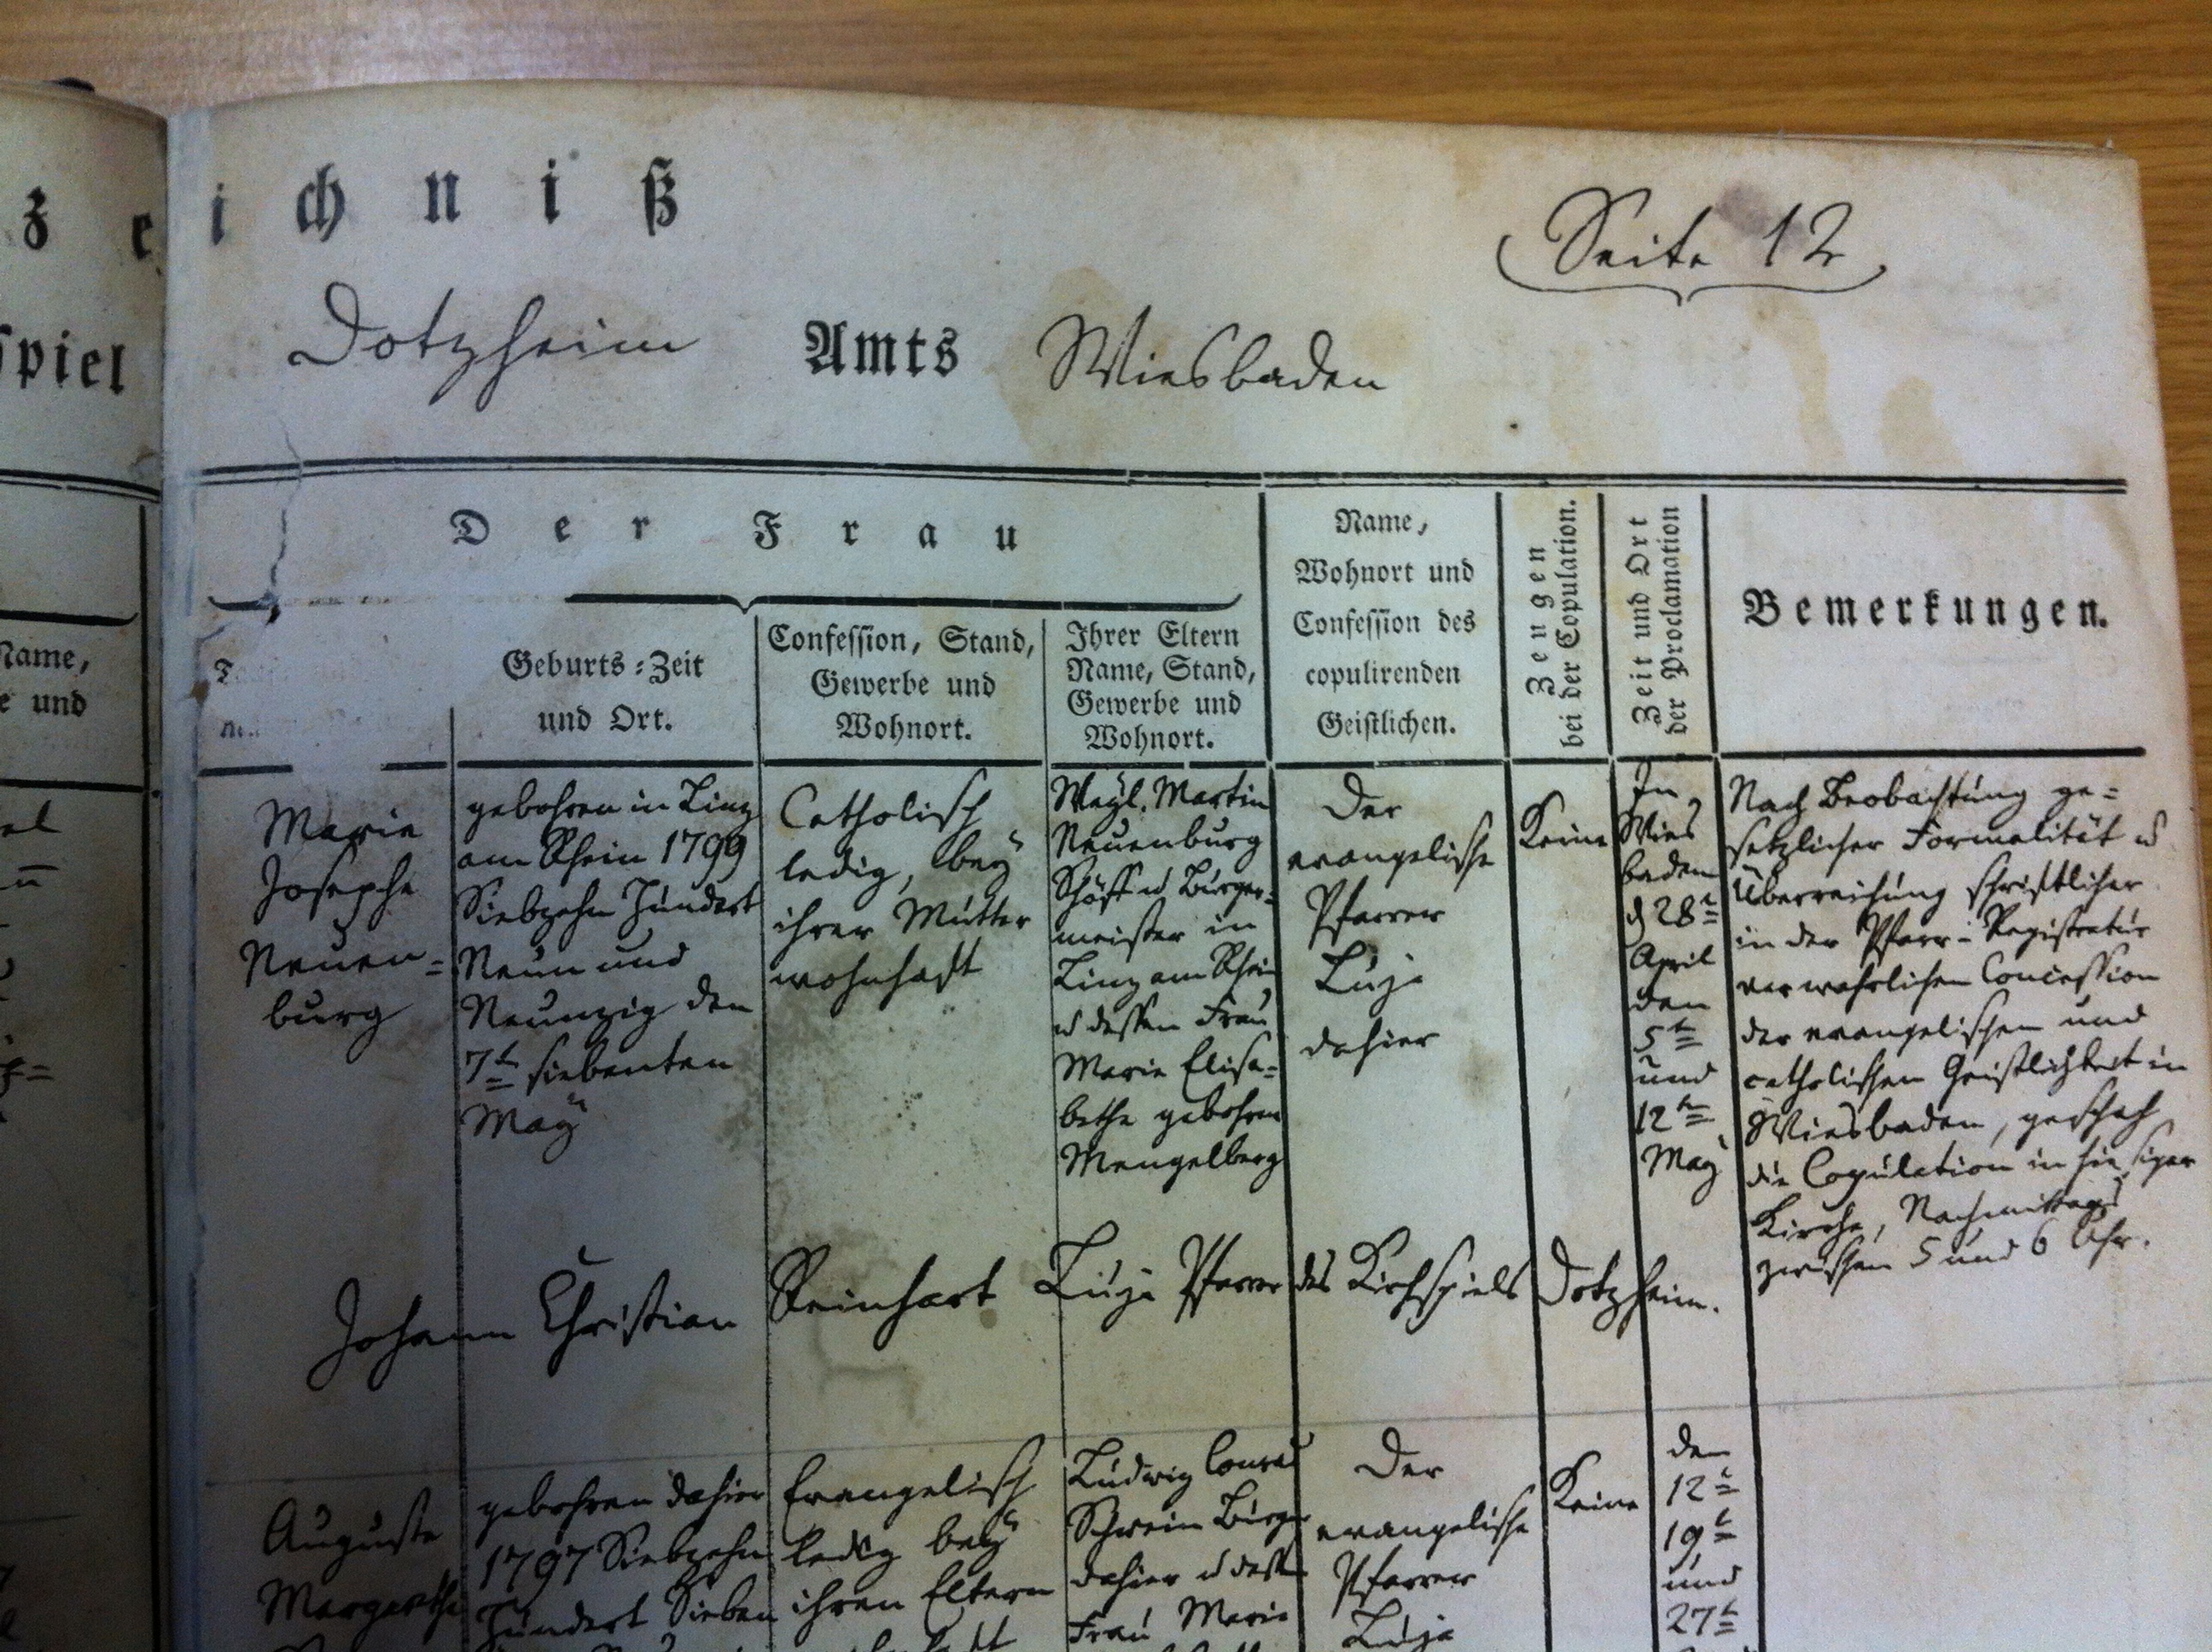 z e i ch n i ß
Seite 12
spiel
Dotzheim Amts Wiesbaden
Der Frau
Name,
e und
Geburts-Zeit
und Ort.
Confession, Stand,
Gewerbe und
Wohnort.
Ihrer Eltern
Name, Stand,
Gewerbe und
Wohnort.
Name,
Wohnort und
Confession des
copulirenden
Geistlichen.
Zeugen
bei der Copulation.
Zeit und Ort
der Proclamation
Bemerkungen.
Marie
Josephe
Neuen=
burg
gebohren in Linz
am Rhein 1799
Siebzehn Hundert
Neun und
Neunzig den
7t siebenten
May
Catholisch
ledig, bey
ihrer Mutter
wohnhaft
Weyl. Martin
Neuenburg
Schöff u Bürger=
meister in
Linz am Rhein
u dessen Frau
Marie Elisa=
betha gebohren
Mengelberg
Der
evangelische
Pfarrer
Luja
dahier
Keine
In
Wies
baden
d 28t
April
den
5t
und
12t
May
Nach Beobachtung ge=
setzlicher Formalität u
Überreichung schriftlicher
in der Pfarr-Registratur
verwahrlichen Concession
der evangelischen und
catholischen Geistlichkeit in
Wiesbaden, geschah
die Copulation in hiesiger
Kirche, Nachmittags
zwischen 5 und 6 Uhr.
Johann Christian Reinhart Luja Pfarrer des Kirchspiels Dotzheim.
Auguste
Margarethe
gebohren dahier
1797 Siebzehn
Hundert Sieben
Evangelisch
ledig bey
ihren Eltern
Ludwig Conrad
Schwein Bürger
dahier u dess
Frau Marie
Der
evangelische
Pfarrer
Luja
Keine
den
12t
19t
und
27t